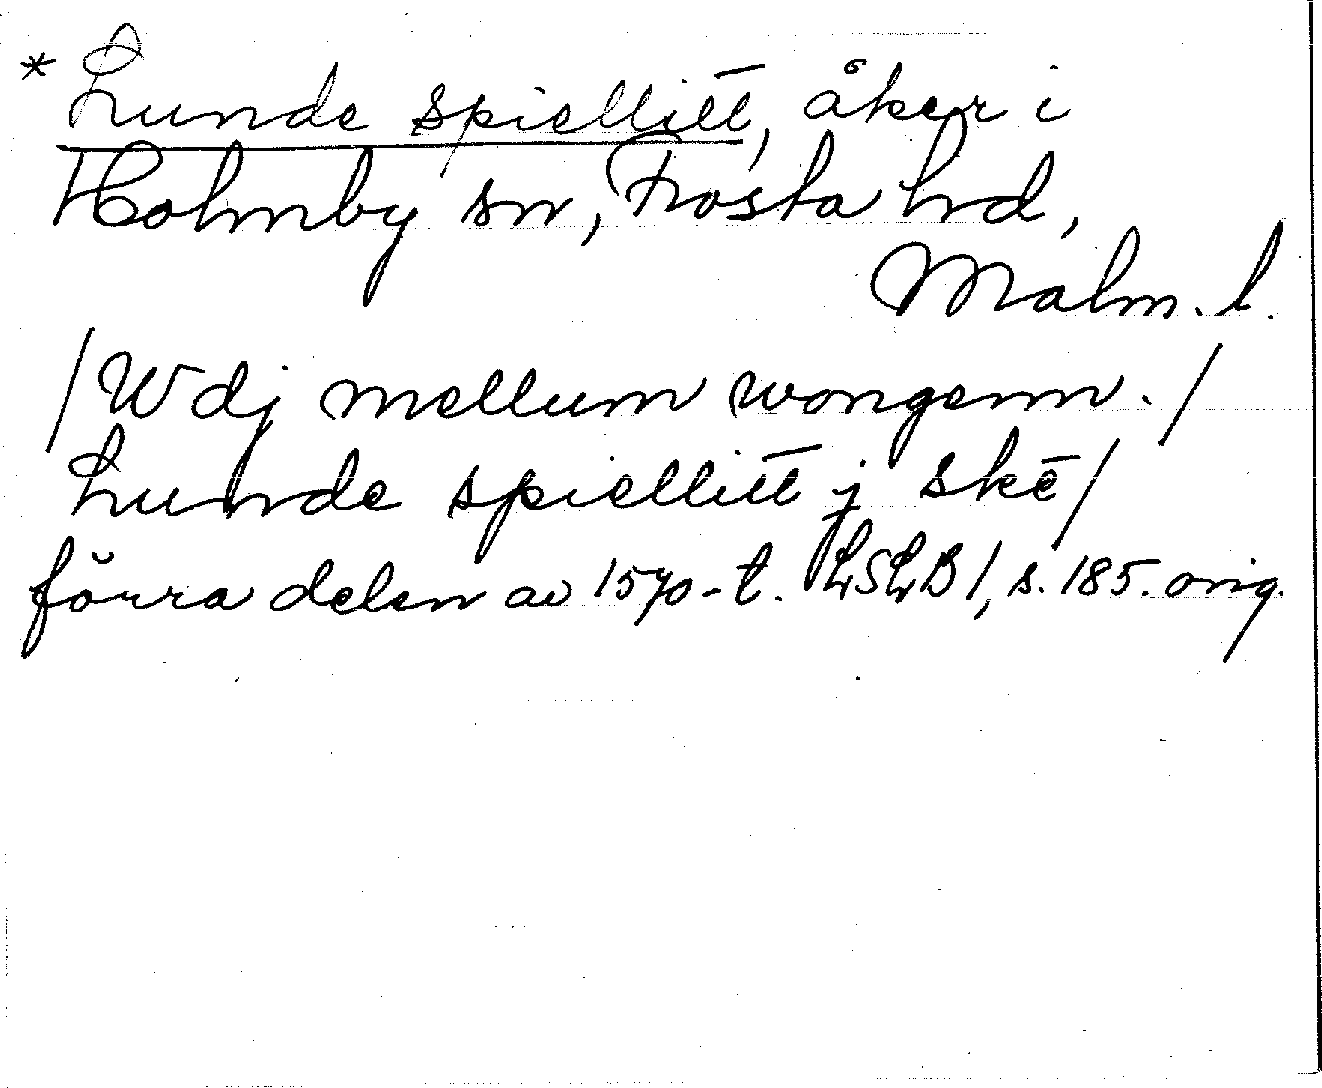 * Lunde spiellitt, åker i
Holmby sn, Frosta hd,
Malm. l.
/Wdj mellum wongenn./
Lunde spiellitt j skē/
förra delen av 1570-t. LSLB 1, s. 185. orig.